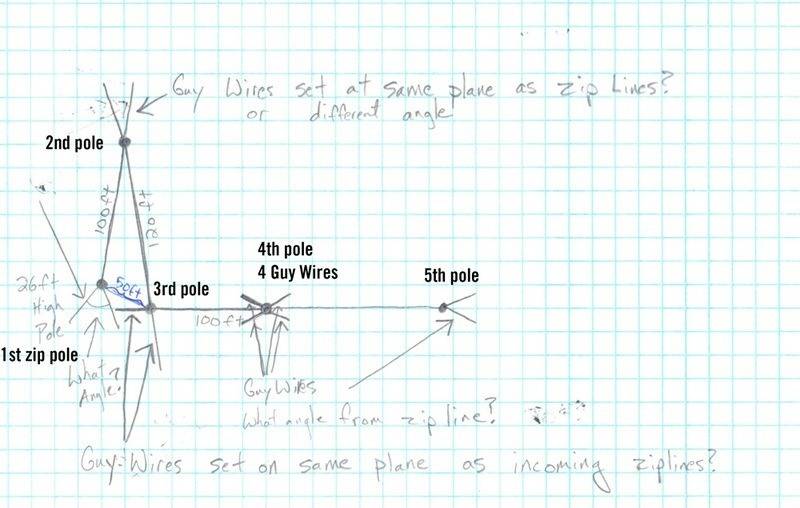 Guy Wires set at same plane as zip Lines?
or different angle
2nd pole
100 ft
120 ft
4th pole
4 Guy Wires
5th pole
50ft
3rd pole
26ft
High
Pole
100 ft
1st zip pole
What
Angle?
Guy Wires
What angle from zip line?
Guy Wires set on same plane as incoming ziplines?